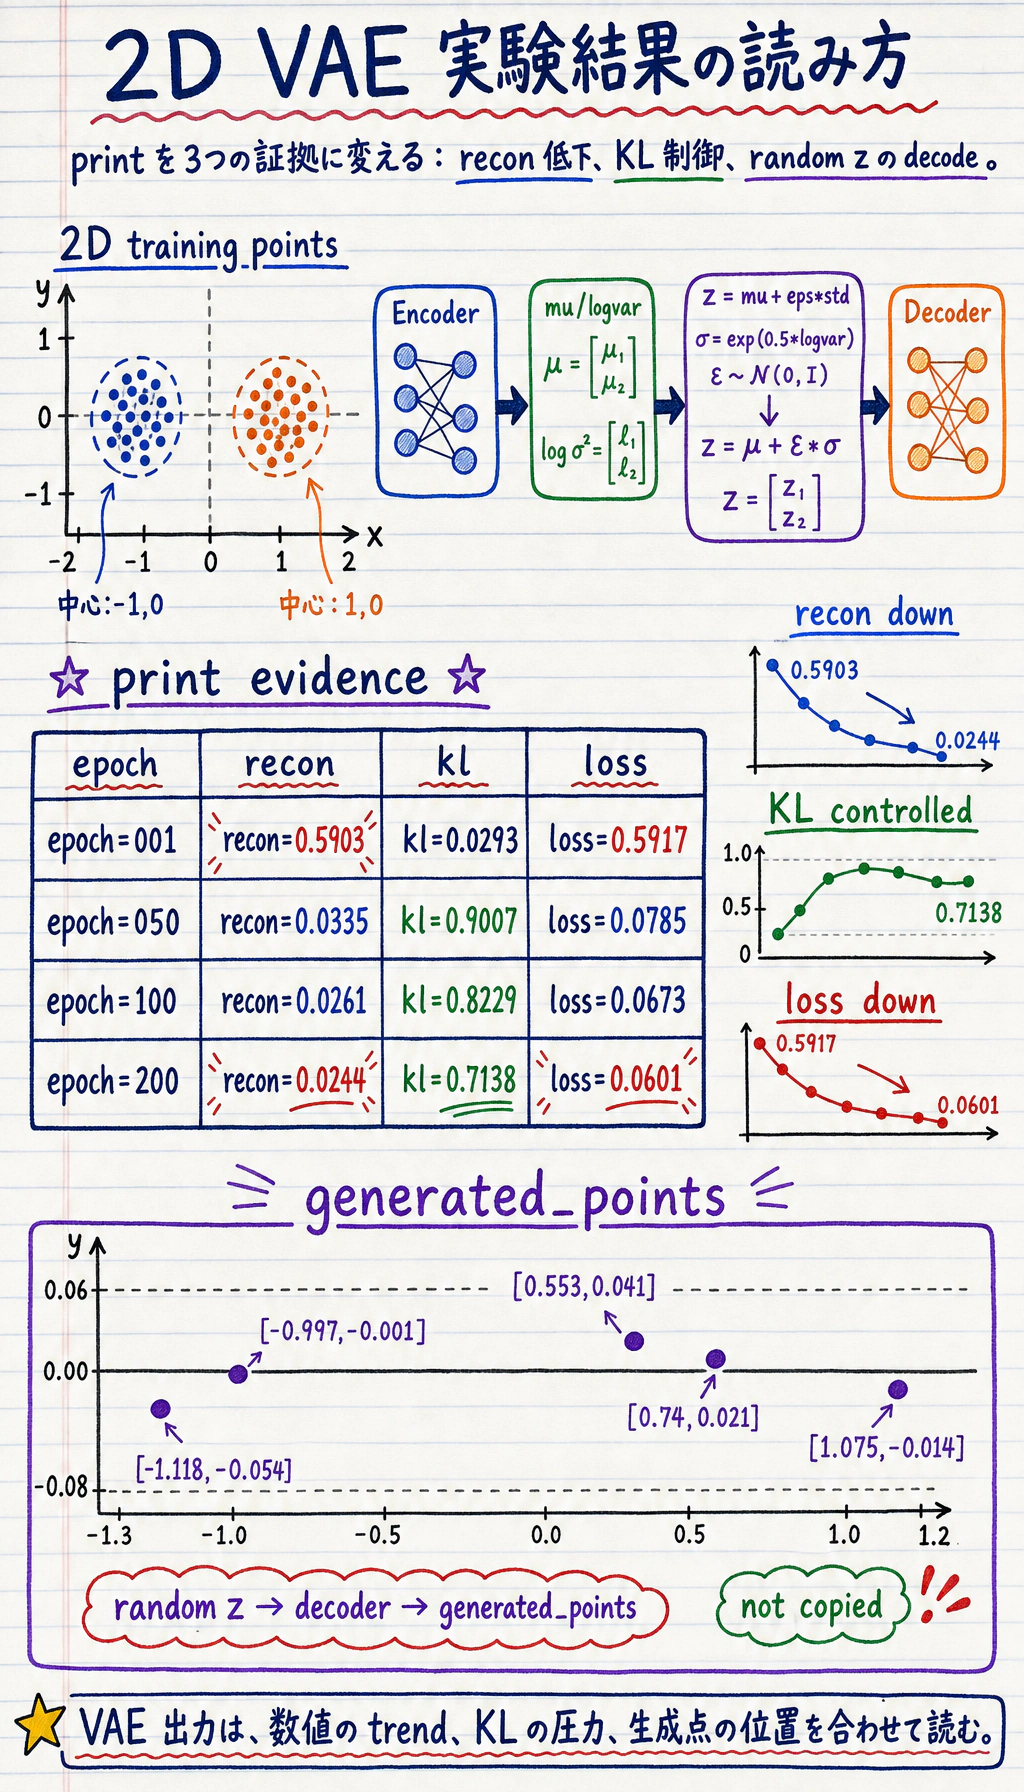 2D VAE 実験結果の読み方
print を 3つの証拠に変える: recon 低下、KL 制御、random z の decode。
2D training_points
y
1
0
-1
-2 -1 0 1 2 x
中心:-1,0
中心:1,0
Encoder
mu/logvar
μ = [μ₁ μ₂]
log σ² = [ℓ₁ ℓ₂]
z = mu + eps*std
σ = exp(0.5*logvar)
ε ~ N(0, I)
z = μ + ε * σ
z = [z₁ z₂]
Decoder
☆ print evidence ☆
epoch recon kl loss
epoch=001 recon=0.5903 kl=0.0293 loss=0.5917
epoch=050 recon=0.0335 kl=0.9007 loss=0.0785
epoch=100 recon=0.0261 kl=0.8229 loss=0.0673
epoch=200 recon=0.0244 kl=0.7138 loss=0.0601
recon down
0.5903
0.0244
KL controlled
1.0
0.5
0
0.7138
loss down
0.5917
0.0601
generated_points
y
0.06
0.00
-0.08
[0.553,0.041]
[-0.997,-0.001]
[0.74, 0.021]
[1.075,-0.014]
[-1.118,-0.054]
-1.3 -1.0 -0.5 0.0 0.5 1.0 1.2
random z → decoder → generated_points
not copied
VAE 出力は、数値の trend、KL の圧力、生成点の位置を合わせて読む。